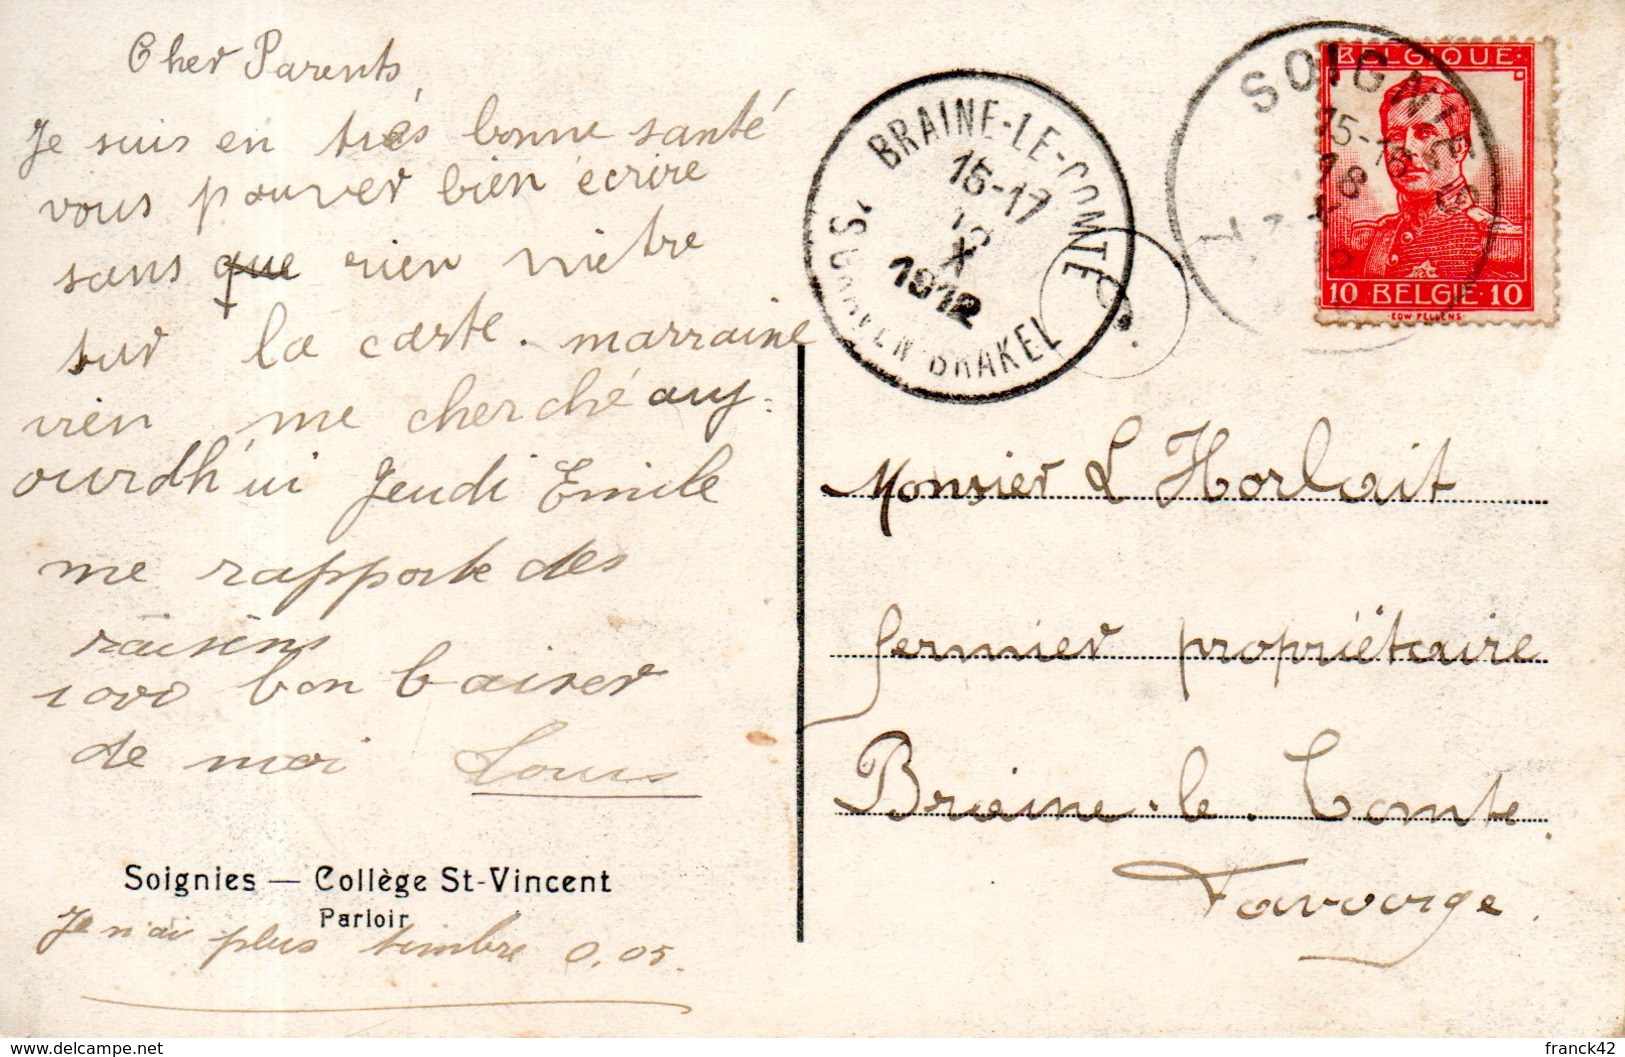 Cher Parents
Je suis en trés bonne santé
vous pouver bien écrire
sans que rien mètre
sur la carte. marraine
vien me cherché auj-
ourdh'ui Jeudi Emile
me rapporte des
raisins
1000 bon baiser
de moi Louis
Soignies — Collège St-Vincent
Parloir
Je n'ai plus timbre 0,05.
BRAINE-LE-COMTE
15-17
X
1912
'S GRAVEN-BRAKEL
SOIGNIES
15-16
18
BELGIQUE
10 BELGIE 10
EDW PELLENS
Monsier L Horlait
fermier propriétaire
Braine-le-Comte.
Favoorge.
delcampe.net
franck42